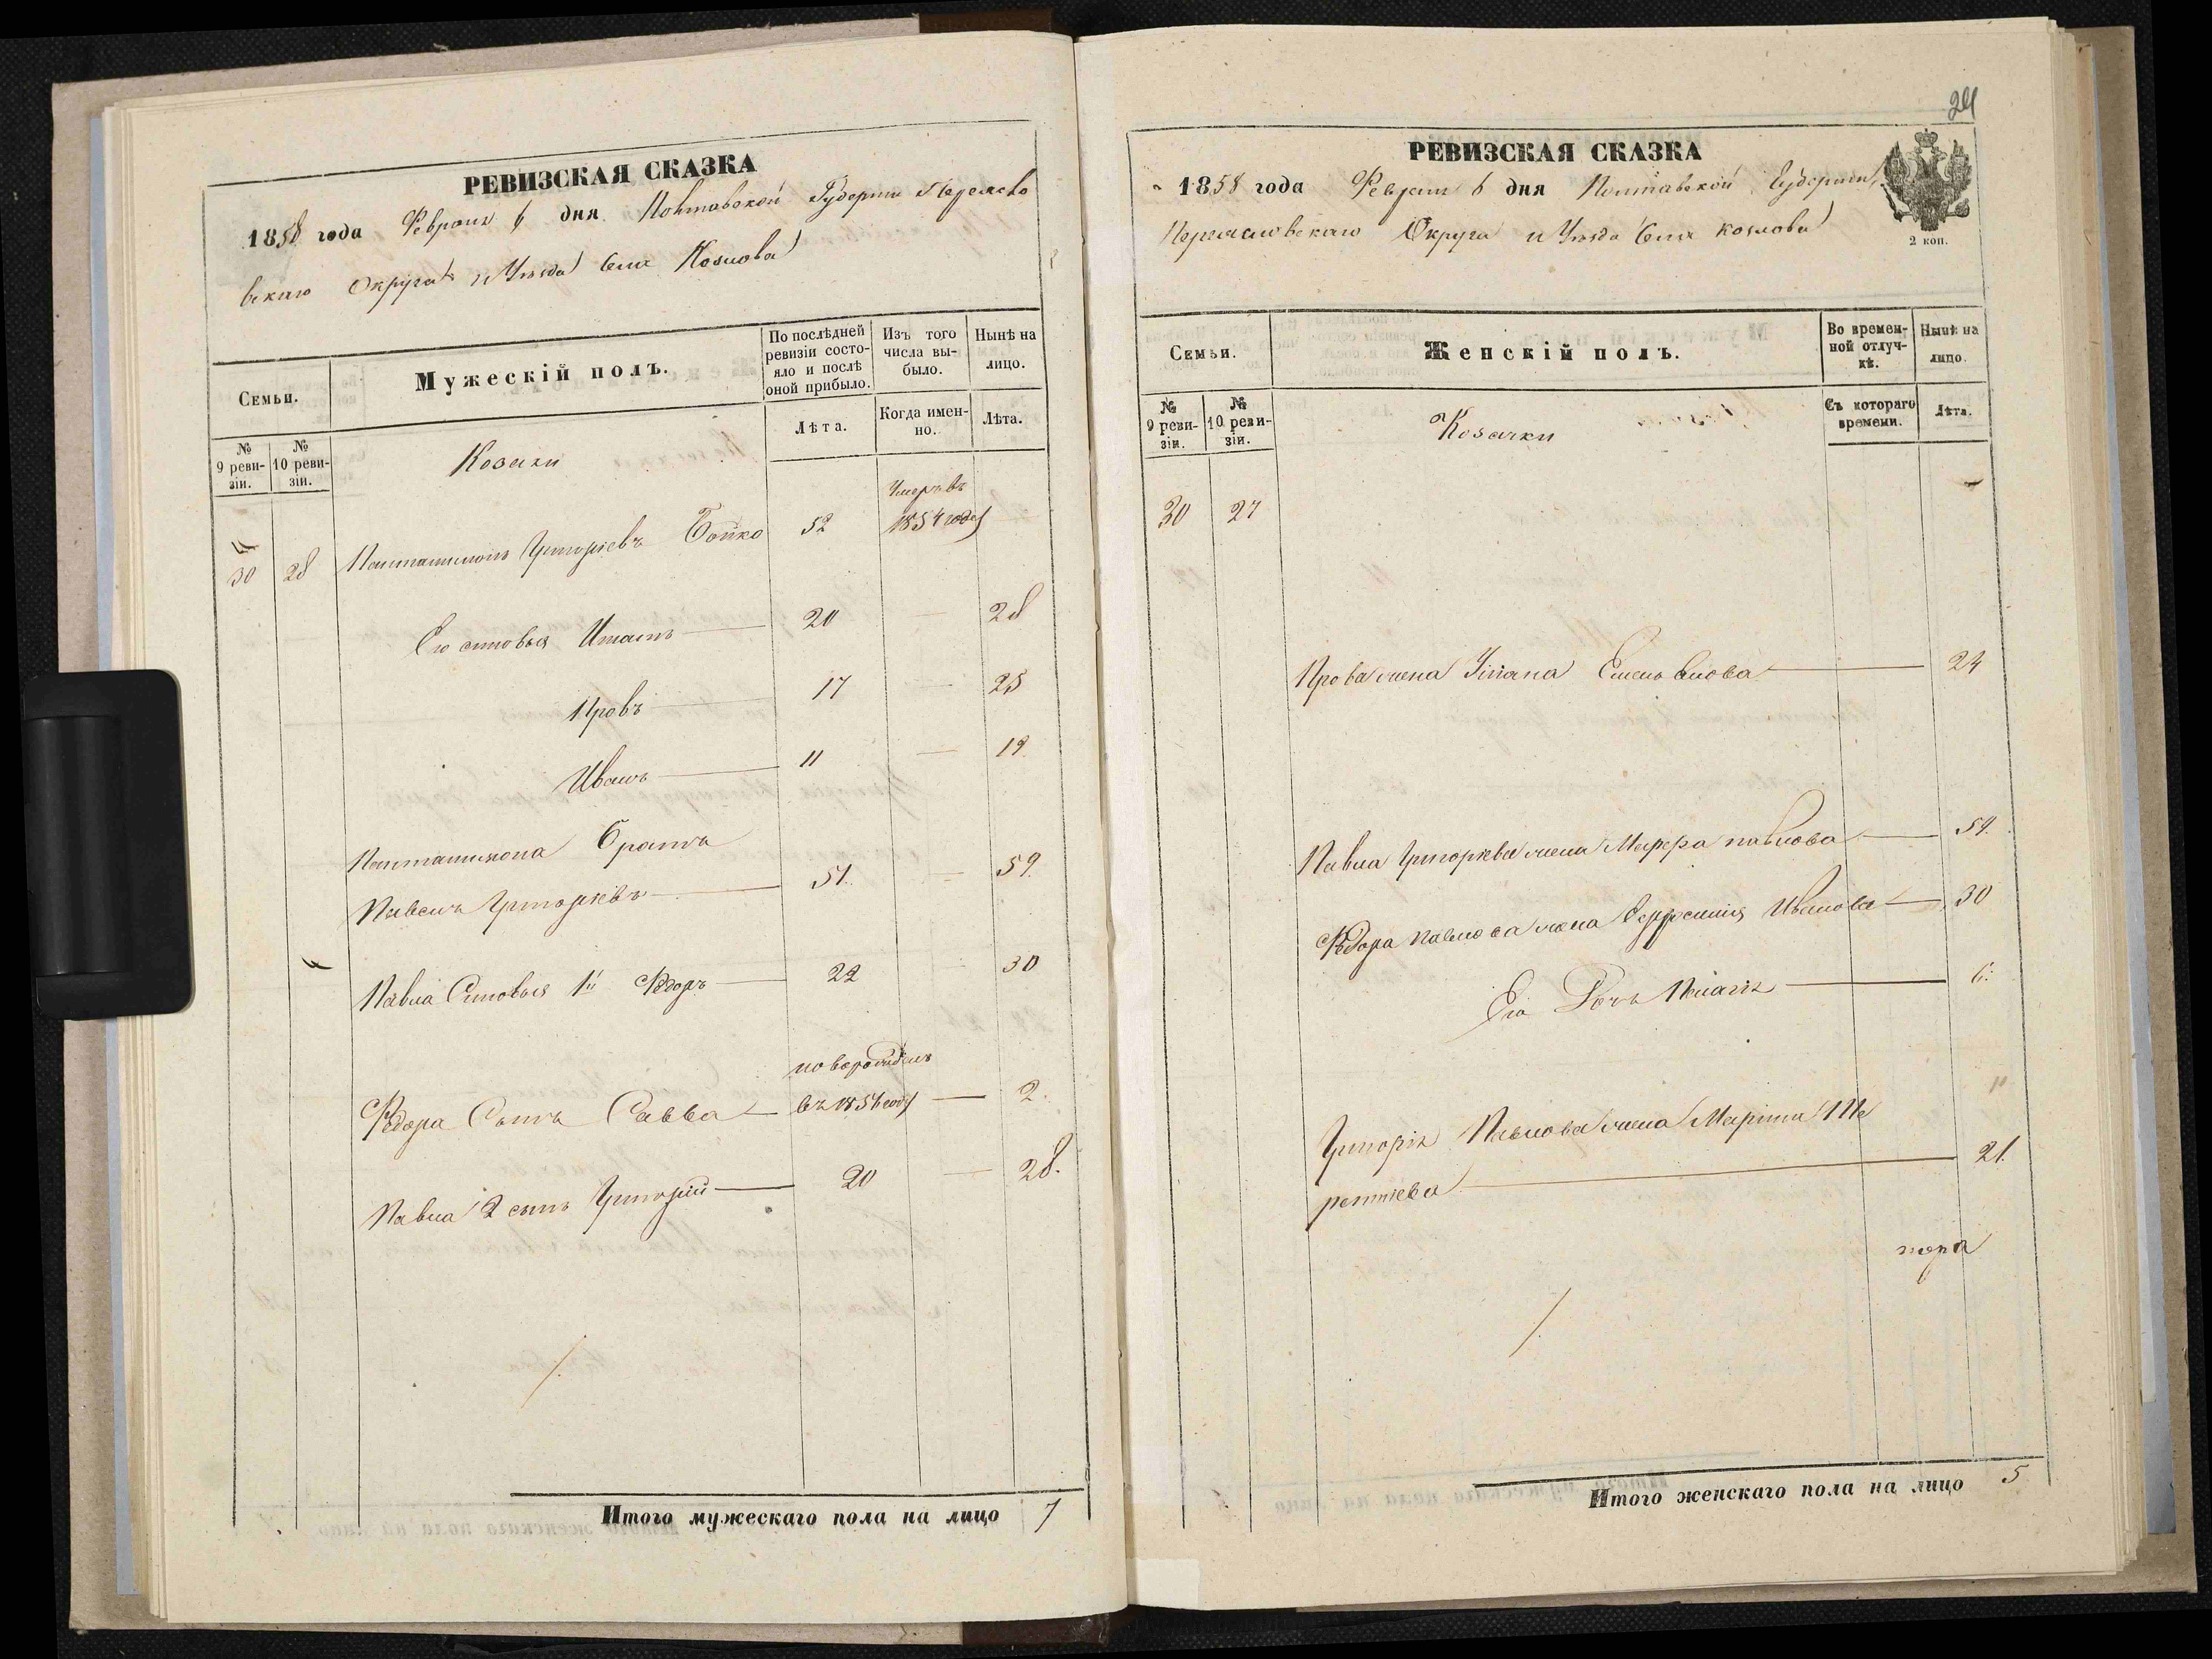 РЕВИЗСКАЯ СКАЗКА
1858 года Февраля 6 дня Полтавской Губерніи Переясло
вскаго Округа и Уѣзда Села Козлова
Семьи.
Мужескій полъ.
По послѣдней ревизіи состояло и послѣ оной прибыло.
Изъ того числа выбыло.
Нынѣ на лицо.
№ 9 ревизіи.
№ 10 ревизіи.
Козаки
Лѣта.
Когда именно.
Лѣта.
30 28 Пантилимонъ Григоріевъ Бойко 52 Умеръ въ 1854 году
Его сыновья 20 — 28
Провъ 17 — 25
Иванъ 11 — 19
Пантилимона Братъ
Павелъ Григоріевъ 51. — 59.
Павла Сыновья 1й Федоръ 22 — 30
новорожденъ
Федора Сынъ Савва въ 1856 году — 2.
Павла 2 сынъ Григорій 20 — 28.
Итого мужескаго пола на лицо 7
24
РЕВИЗСКАЯ СКАЗКА
1858 года Февраля 6 дня Полтавской Губерніи,
Переясловскаго Округа и Уѣзда Села Козлова
2 коп.
Семьи.
Женскій полъ.
Во временной отлучкѣ.
Нынѣ на лицо.
№ 9 ревизіи.
№ 10 ревизіи.
Козачки
Съ котораго времени.
Лѣта.
30 27
Прова жена Уліана Емельянова — 24
Павла Григоріева жена Марфа Павлова — 59.
Федора Павлова жена Евфросинія Иванова — 30
Его Дочь Пелагія — 6.
Григорія Павлова жена Марина Те
рентіева — 21.
Итого женскаго пола на лицо 5